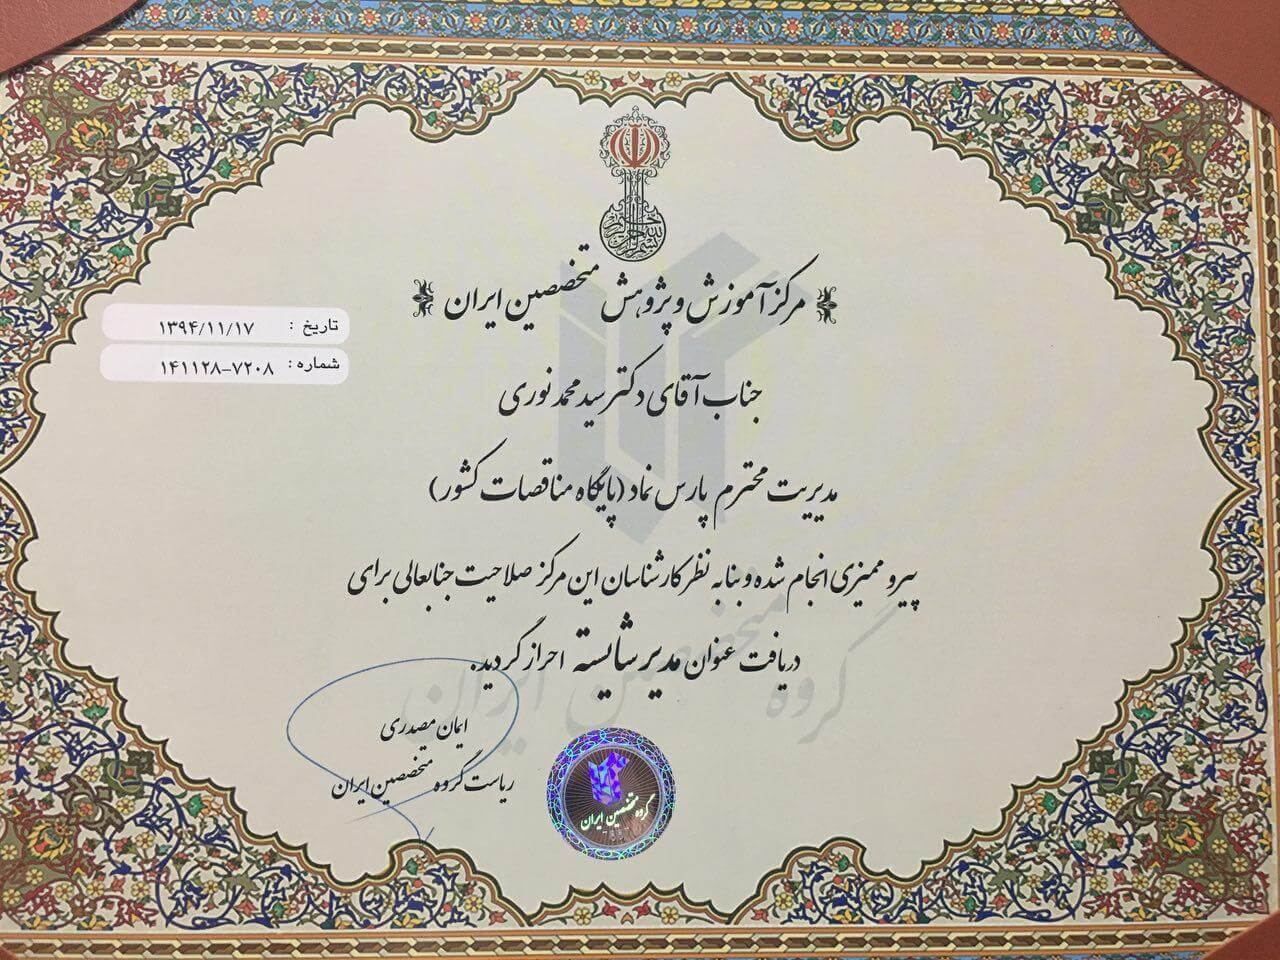 بسم الله الرحمن الرحیم
مرکز آموزش و پژوهش متخصصین ایران
تاریخ : ۱۳۹۴/۱۱/۱۷
شماره : ۱۴۱۱۲۸-۷۲۰۸
جناب آقای دکتر سید محمد نوری
مدیریت محترم پارس نماد (پایگاه مناقصات کشور)
پیرو ممیزی انجام شده و بنا به نظر کارشناسان این مرکز صلاحیت جنابعالی برای
دریافت عنوان مدیر شایسته احراز گردید.
گروه متخصصین ایران
ایمان مصدری
ریاست گروه متخصصین ایران
گروه متخصصین ایران